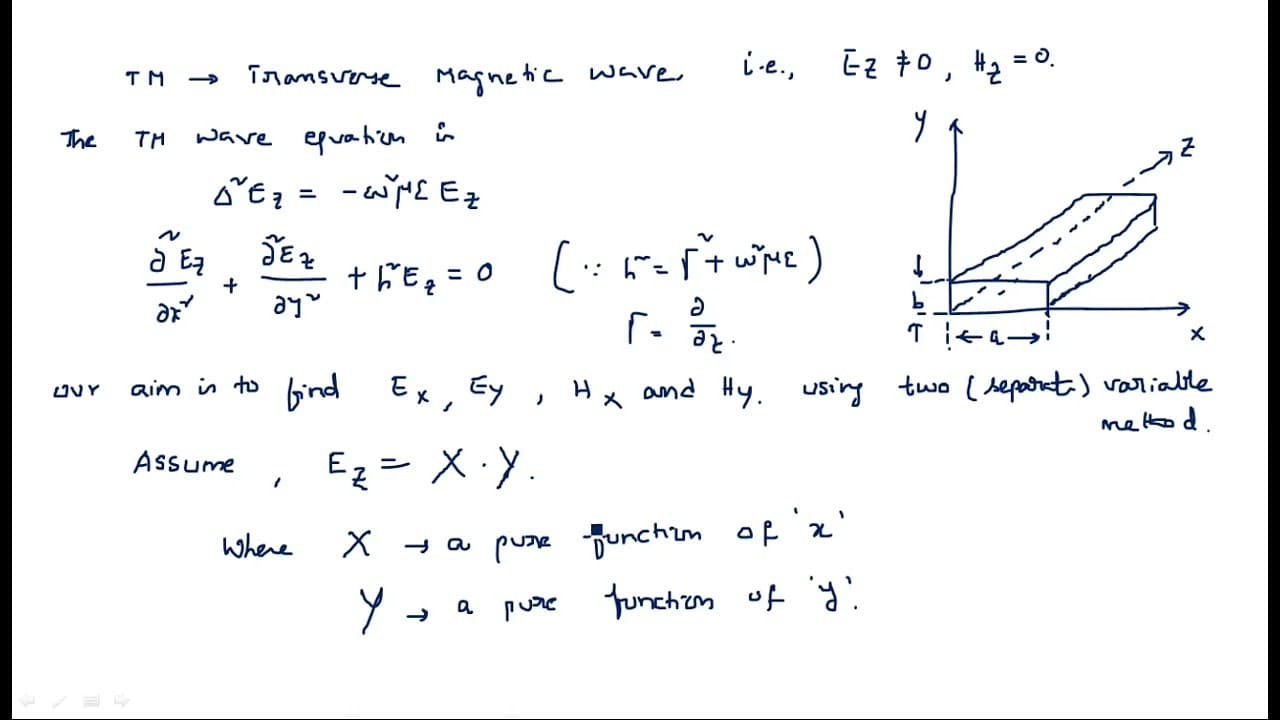 TM → Transverse Magnetic wave, i.e., Ez ≠ 0, Hz = 0.
The TM wave equation is
∆²Ez = -ω²με Ez
∂²Ez/∂x² + ∂²Ez/∂y² + h²Ez = 0 (∵ h² = Γ² + ω²με)
Γ = ∂/∂z.
y
z
b
a
x
our aim is to find Ex, Ey, Hx and Hy. using two (separat.) variable
method.
Assume, Ez = X·Y.
where X → a pure function of 'x'
Y → a pure function of 'y'.